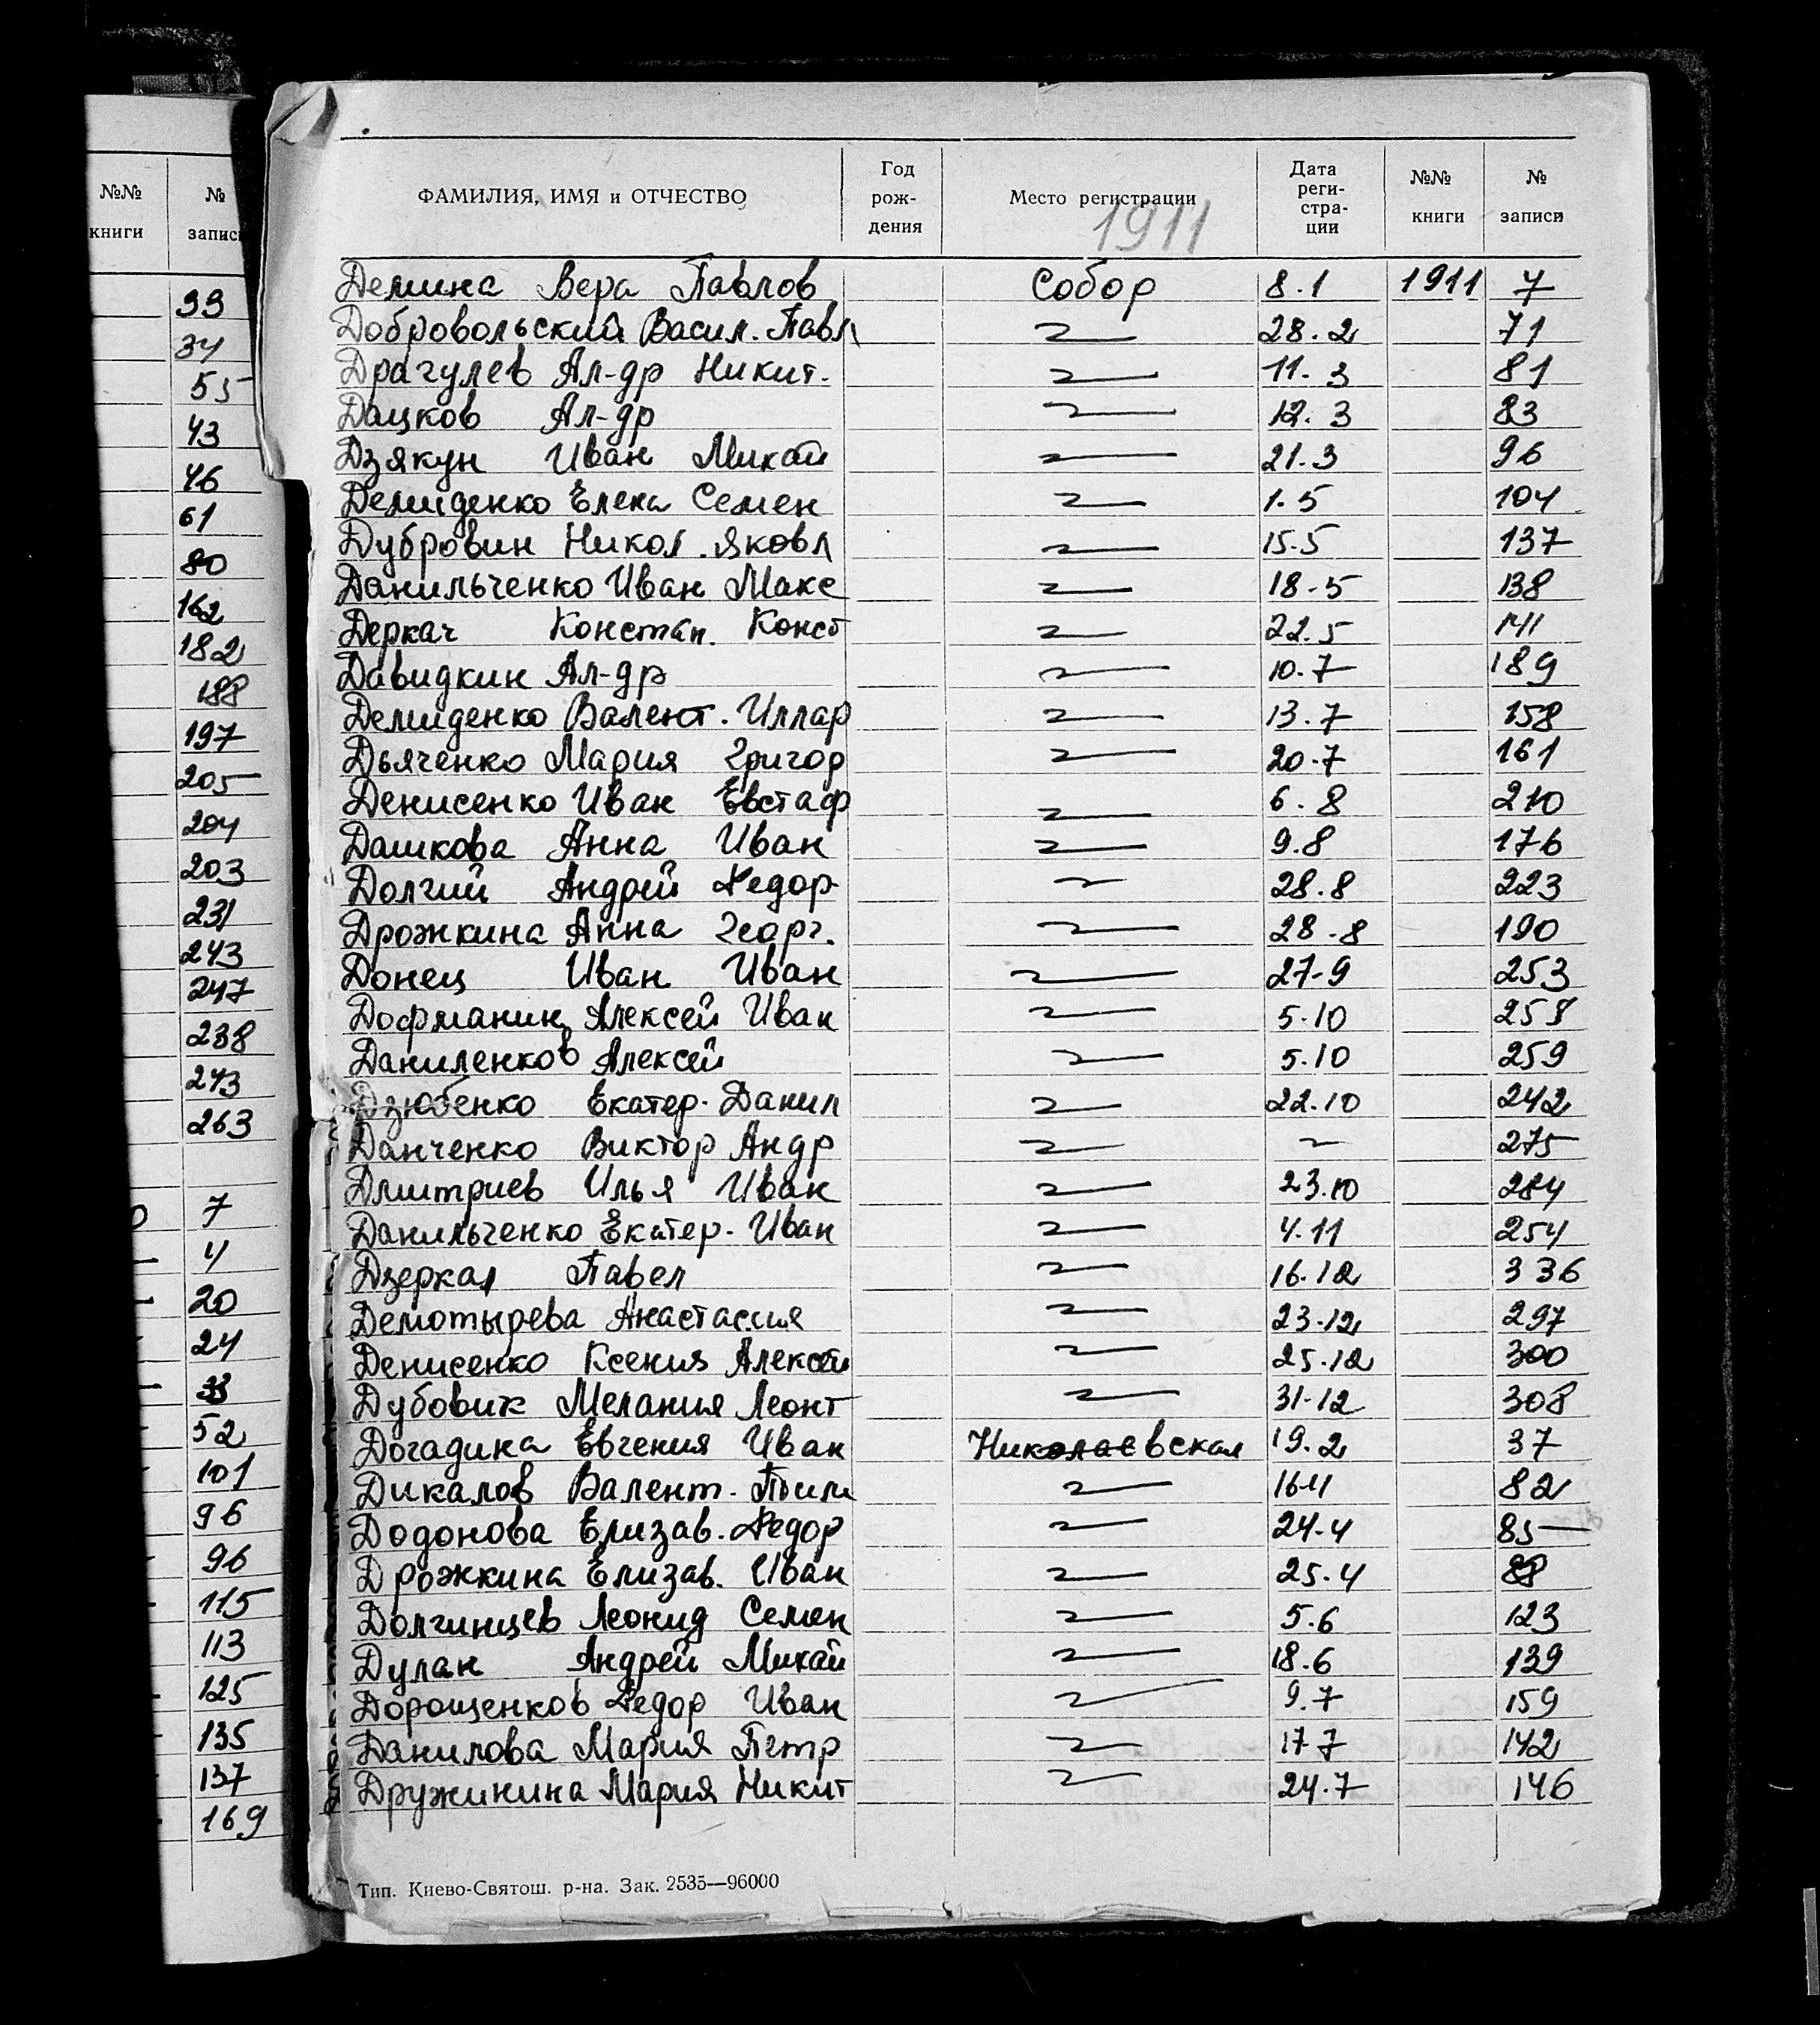 №№ книги № записи
33
34
55
43
46
61
80
162
182
188
197
205
204
203
231
243
247
238
243
263
7
4
20
24
33
52
101
96
96
115
113
125
135
137
169
ФАМИЛИЯ, ИМЯ и ОТЧЕСТВО Год рож- дения Место регистрации Дата реги- стра- ции №№ книги № записи
1911
Демина Вера Павлов Собор 8.1 1911 7
Добровольский Васил. Павл 28.2 71
Драгулев Ал-др Никит. 11.3 81
Дацков Ал-др 12.3 83
Дзякун Иван Михай 21.3 96
Демиденко Елена Семен 1.5 104
Дубровин Никол. Яковл 15.5 137
Данильченко Иван Макс 18-5 138
Деркач Констан. Конст 22.5 141
Давидкин Ал-др 10.7 189
Демиденко Валент. Иллар 13.7 158
Дьяченко Мария Григор 20.7 161
Денисенко Иван Евстаф 6.8 210
Дашкова Анна Иван 9.8 176
Долгий Андрей Федор. 28.8 223
Дрожкина Анна Георг. 28.8 190
Донец Иван Иван 27-9 253
Дофманин Алексей Иван 5.10 258
Даниленков Алексей 5.10 259
Дзюбенко Екатер. Данил 22.10 242
Данченко Виктор Андр 275
Дмитриев Илья Иван 23.10 284
Данильченко Екатер. Иван 4.11 254
Дзеркал Павел 16.12 336
Демотырева Анастасия 23.12 297
Денисенко Ксения Алексей 25.12 300
Дубовик Мелания Леонт 31-12 308
Догадина Евгения Иван Николаевская 19.2 37
Дикалов Валент. 16.4 82
Додонова Елизав. Федор 24.4 85
Дрожкина Елизав. Иван 25.4 88
Долгинцев Леонид Семен 5.6 123
Дулан Андрей Михай 18.6 139
Дорощенков Федор Иван 9.7 159
Данилова Мария Петр 17 7 142
Дружинина Мария Никит 24.7 146
Тип. Киево-Святош. р-на. Зак. 2535—96000